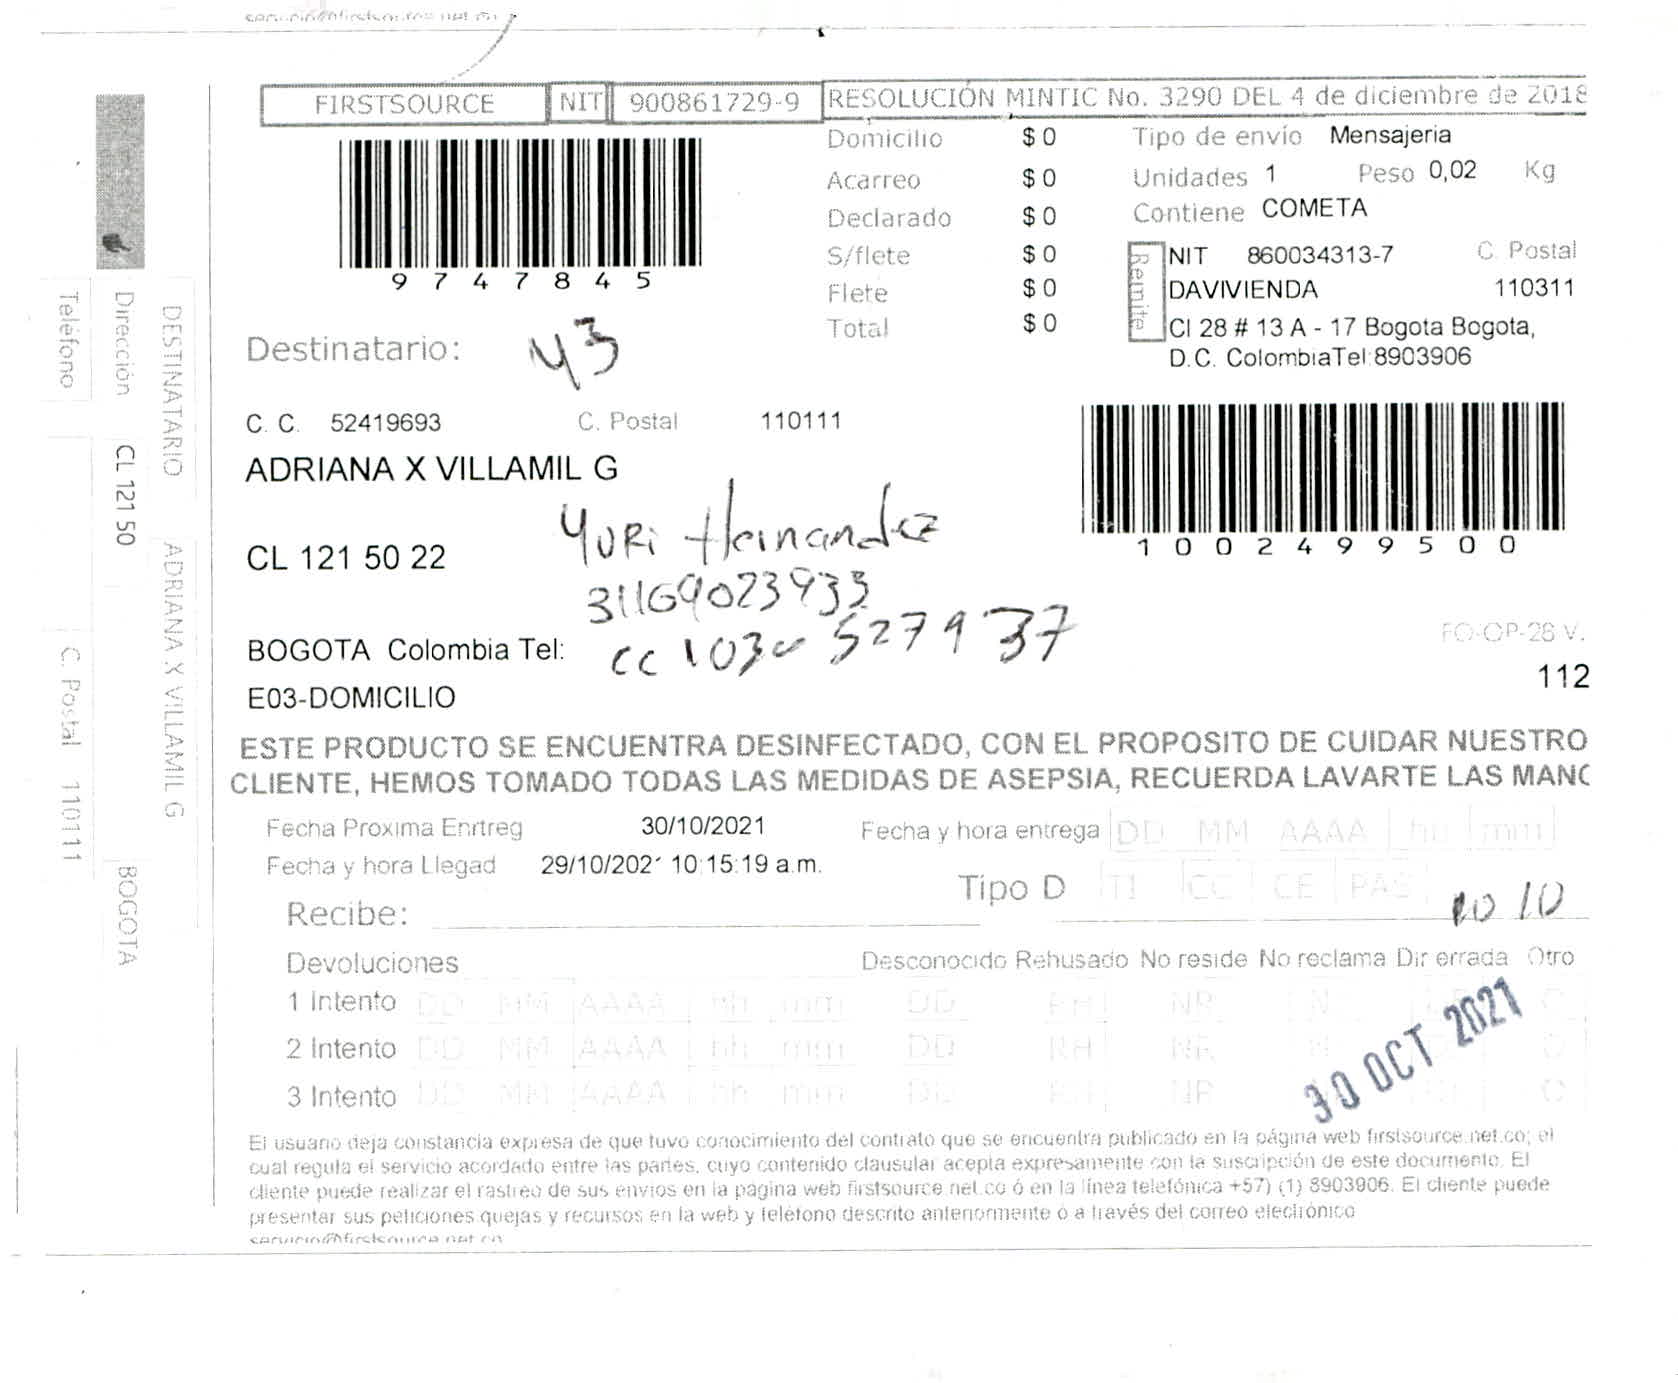 FIRSTSOURCE NIT 900861729-9 RESOLUCIÓN MINTIC No. 3290 DEL 4 de diciembre de 2018
9747845
Domicilio $ 0
Acarreo $ 0
Declarado $ 0
S/flete $ 0
Flete $ 0
Total $ 0
Tipo de envío Mensajeria
Unidades 1 Peso 0,02 Kg
Contiene COMETA
Remite
NIT 860034313-7 C. Postal
DAVIVIENDA 110311
Cl 28 # 13 A - 17 Bogota Bogota,
D.C. ColombiaTel:8903906
1002499500
Destinatario: 43
C. C. 52419693 C. Postal 110111
ADRIANA X VILLAMIL G
Yuri Hernandez
CL 121 50 22
31169023933
BOGOTA Colombia Tel:
E03-DOMICILIO
FO-OP-28 V.
112
ESTE PRODUCTO SE ENCUENTRA DESINFECTADO, CON EL PROPOSITO DE CUIDAR NUESTRO
CLIENTE, HEMOS TOMADO TODAS LAS MEDIDAS DE ASEPSIA, RECUERDA LAVARTE LAS MANO
Fecha Proxima Enrtreg 30/10/2021 Fecha y hora entrega DD MM AAAA hh mm
Fecha y hora Llegad 29/10/2021 10:15:19 a.m.
Tipo D TI CC CE PAS
Recibe: 10 10
Devoluciones Desconocido Rehusado No reside No reclama Dir errada Otro
1 Intento DD MM AAAA hh mm DD RH NR N O
2 Intento DD MM AAAA hh mm DD RH NR N O
3 Intento DD MM AAAA hh mm DD RH NR O
30 OCT 2021
El usuario deja constancia expresa de que tuvo conocimiento del contrato que se encuentra publicado en la página web firstsource.net.co; el
cual regula el servicio acordado entre las partes, cuyo contenido clausular acepta expresamente con la suscripción de este documento. El
cliente puede realizar el rastreo de sus envios en la pagina web firstsource.net.co ó en la línea telefónica +57) (1) 8903906. El cliente puede
presentar sus peticiones quejas y recursos en la web y teléfono descrito anteriormente o a través del correo electrónico
servicio@firstsource.net.co
DESTINATARIO ADRIANA X VILLAMIL G
Dirección CL 121 50 BOGOTA
Teléfono C. Postal 110111